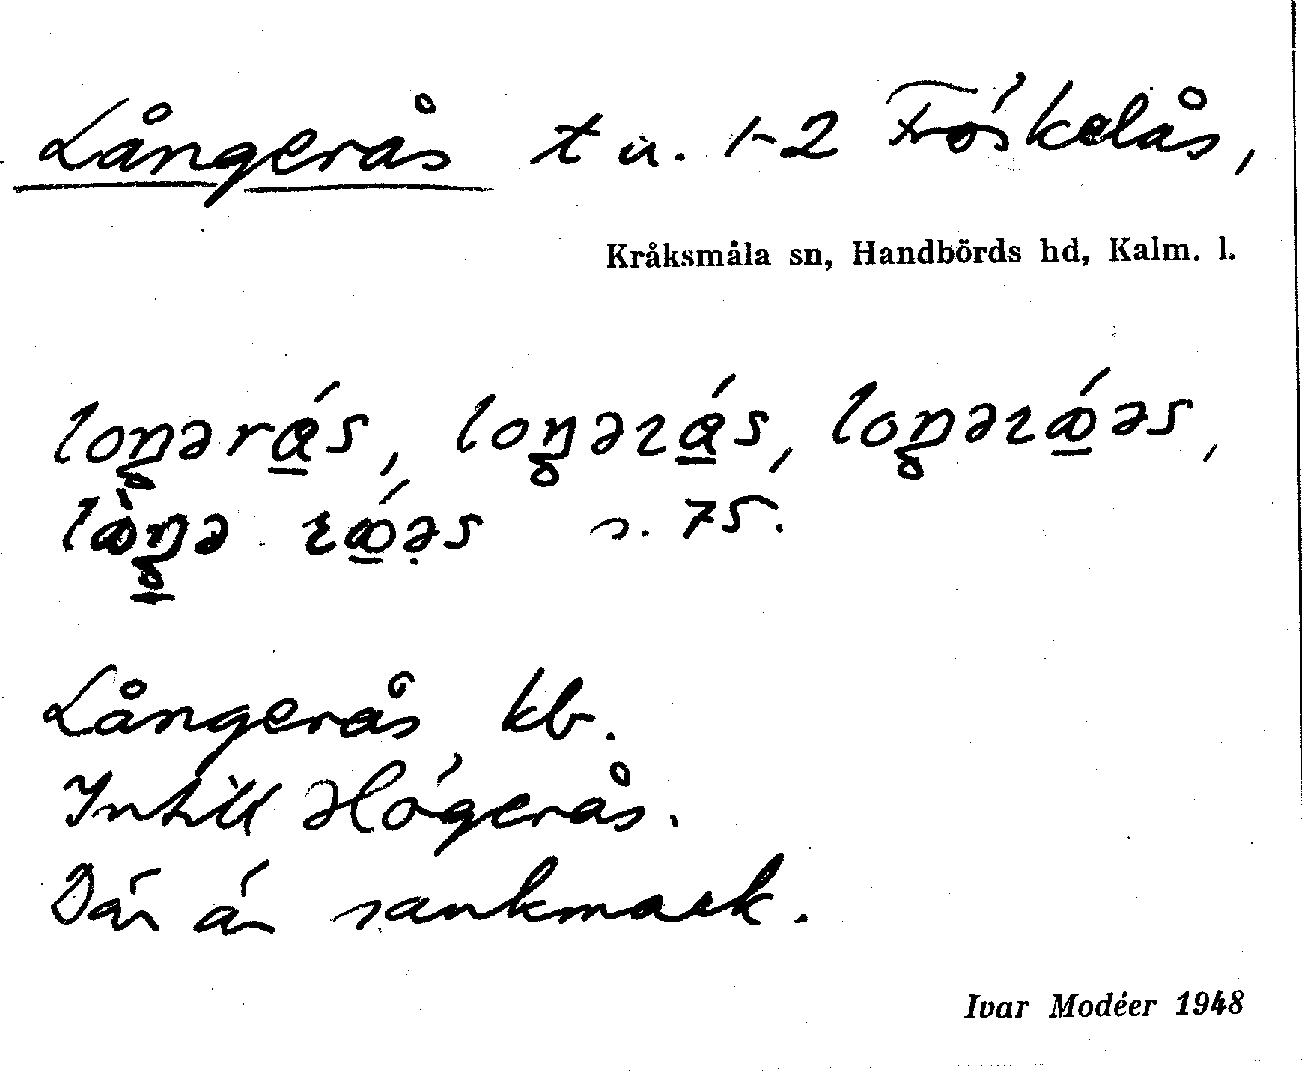 Långerås t u. 1-2 Fröskelås,
Kråksmåla sn, Handbörds hd, Kalm. l.
loŋərɑ́s, loŋəɽɑ́s, loŋəɽǻəs,
lå̀ŋə ɽǻəs s. 75.
Långerås kb.
Intill Högerås.
Där är sankmark.
Ivar Modéer 1948